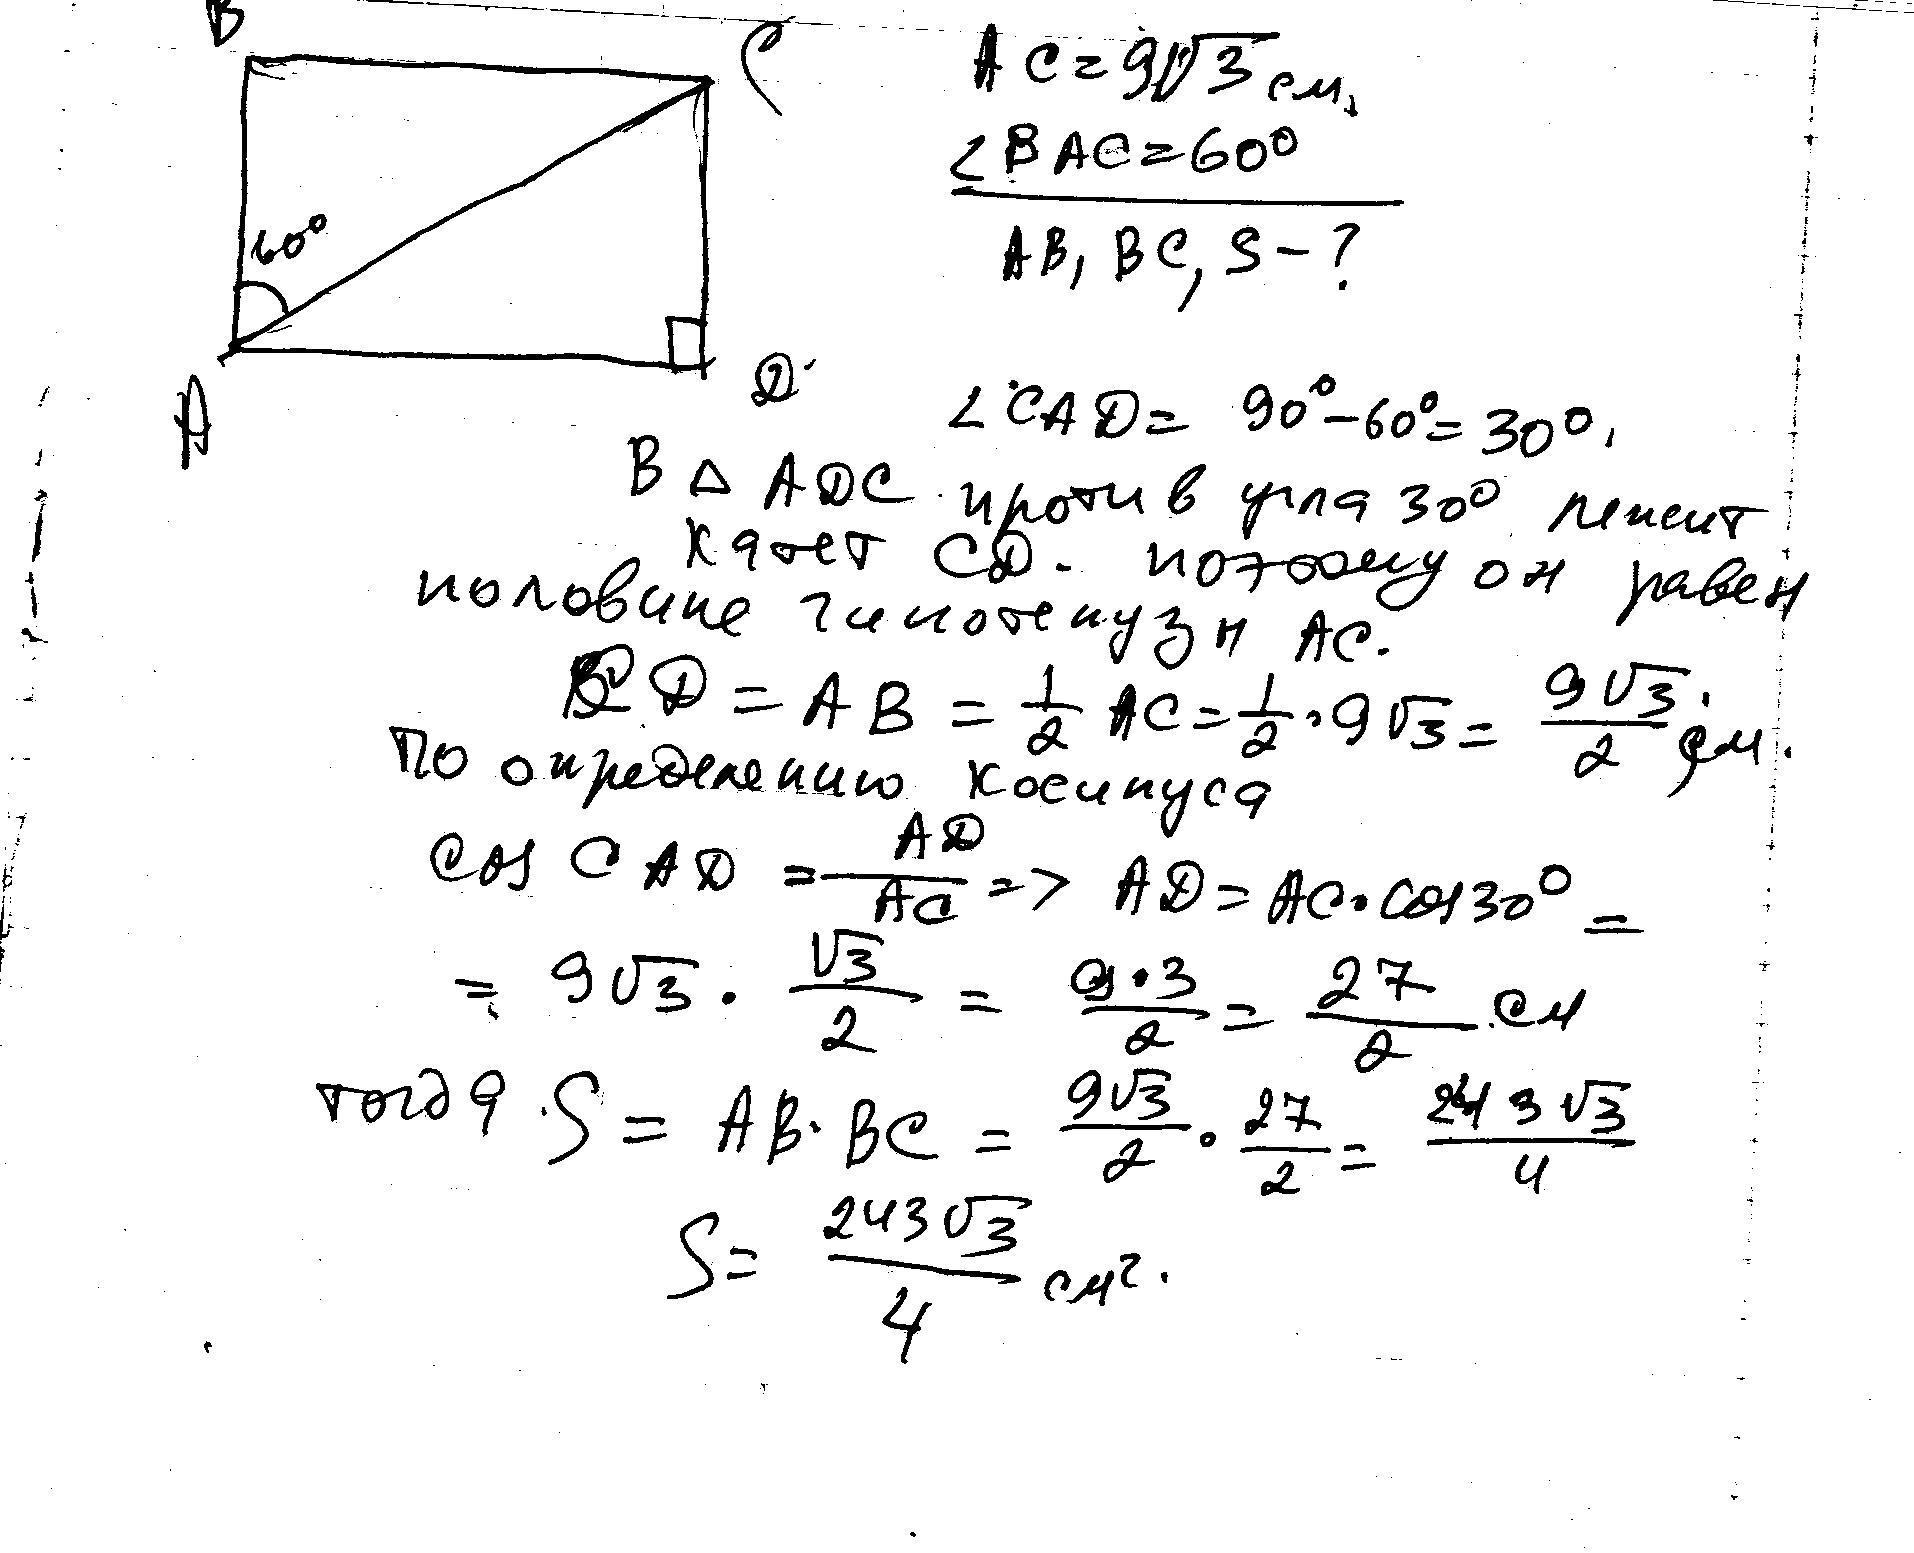 B
C
AC=9√3 см,
∠BAC=60°
60°
AB, BC, S-?
A
D
∠CAD= 90°-60°=30°,
В △ ADC против угла 30° лежит
катет CD. поэтому он равен
половине гипотенузы AC.
CD = AB = 1/2 AC = 1/2 · 9√3 = 9√3/2 см.
По определению косинуса
cos CAD = AD/AC => AD = AC · cos30° =
= 9√3 · √3/2 = 9·3/2 = 27/2 см
тогда S = AB · BC = 9√3/2 · 27/2 = 243√3/4
S = 243√3/4 см².